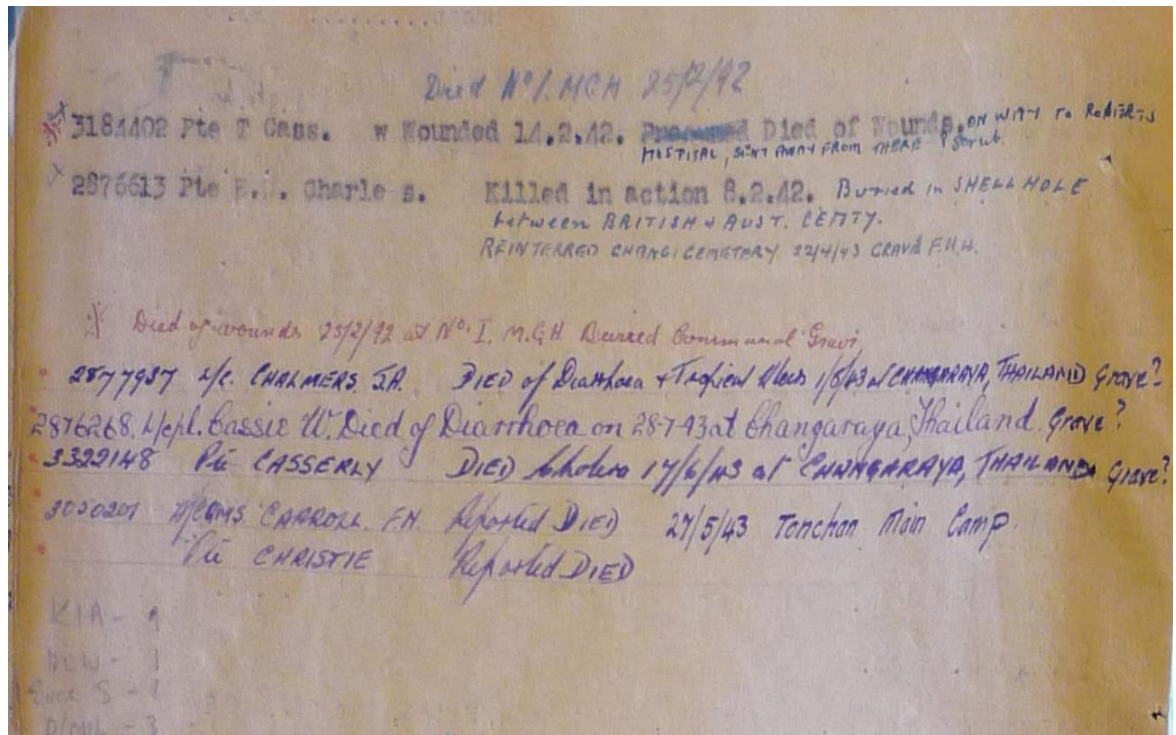 Died No 1. MGH 25/2/42
3184402 Pte T Cass. w Wounded 14.2.42. Presumed Died of Wounds. ON WAY TO ROBERTS
HOSPITAL, SENT AWAY FROM THERE
2876613 Pte Charle s. Killed in action 8.2.42. Buried in SHELL HOLE
between BRITISH & AUST. CEMTY.
REINTERRED CHANGI CEMETERY 22/4/43 GRAVE F.H.H.
Died of wounds 25/2/42 at No. I. M.G.H. Buried Communal Grave
2877937 L/c. CHALMERS J.A. DIED of Diarrhoea & Tropical Ulcers 1/8/43 at CHANGARAYA, THAILAND Grave?
2876268. L/cpl. Cassie W. Died of Diarrhoea on 28-7-43 at Changaraya, Thailand. Grave?
3322148 Pte CASSERLY DIED Cholera 17/6/43 at CHANGARAYA, THAILAND Grave?
3050201 CARROLL. F.H. Reported DIED 27/5/43 Tonchan Main Camp.
Pte CHRISTIE Reported DIED
KIA - 9
DOW - 1
S - 1
- 3